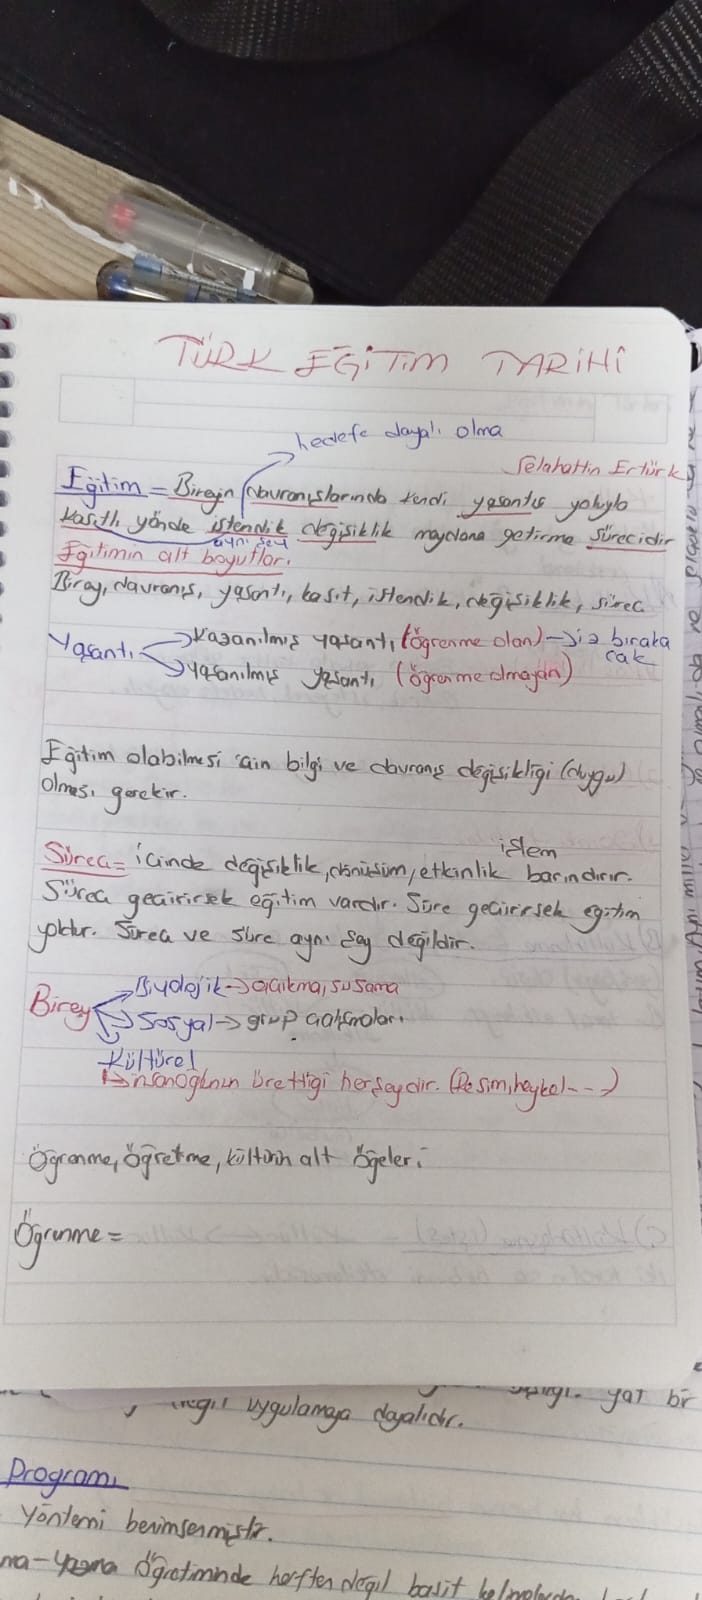 TÜRK EĞİTİM TARİHİ
hedefe dayalı olma
Selahattin Ertürk
Eğitim = Bireyin davranışlarında kendi yaşantısı yoluyla
kasıtlı yönde istendik değişiklik meydana getirme sürecidir
aynı şey
Eğitimin alt boyutları.
Birey, davranış, yaşantı, kasıt, istendik, değişiklik, süreç
Yaşantı → Kazanılmış yaşantı (öğrenme olan) → iz bıraka
cak
→ yaşanılmış yaşantı (öğrenme olmayan)
Eğitim olabilmesi için bilgi ve davranış değişikliği (duygu)
olması gerekir.
işlem
Süreç = içinde değişiklik, dönüşüm, etkinlik barındırır.
Süreç geçirirsek eğitim vardır. Süre geçirirsek eğitim
yoktur. Süreç ve süre aynı şey değildir.
Birey → Biyolojik → acıkma, susama
→ Sosyal → grup çalışmaları.
→ Kültürel
↳ insanoğlunun ürettiği herşeydir. (Resim, heykel ---)
Öğrenme, öğretme, kültürün alt öğeleri
Öğrenme =
değil uygulamaya dayalıdır. yat bir
Programı
yöntemi benimsenmiştir.
ma-yazma öğretiminde harften değil basit